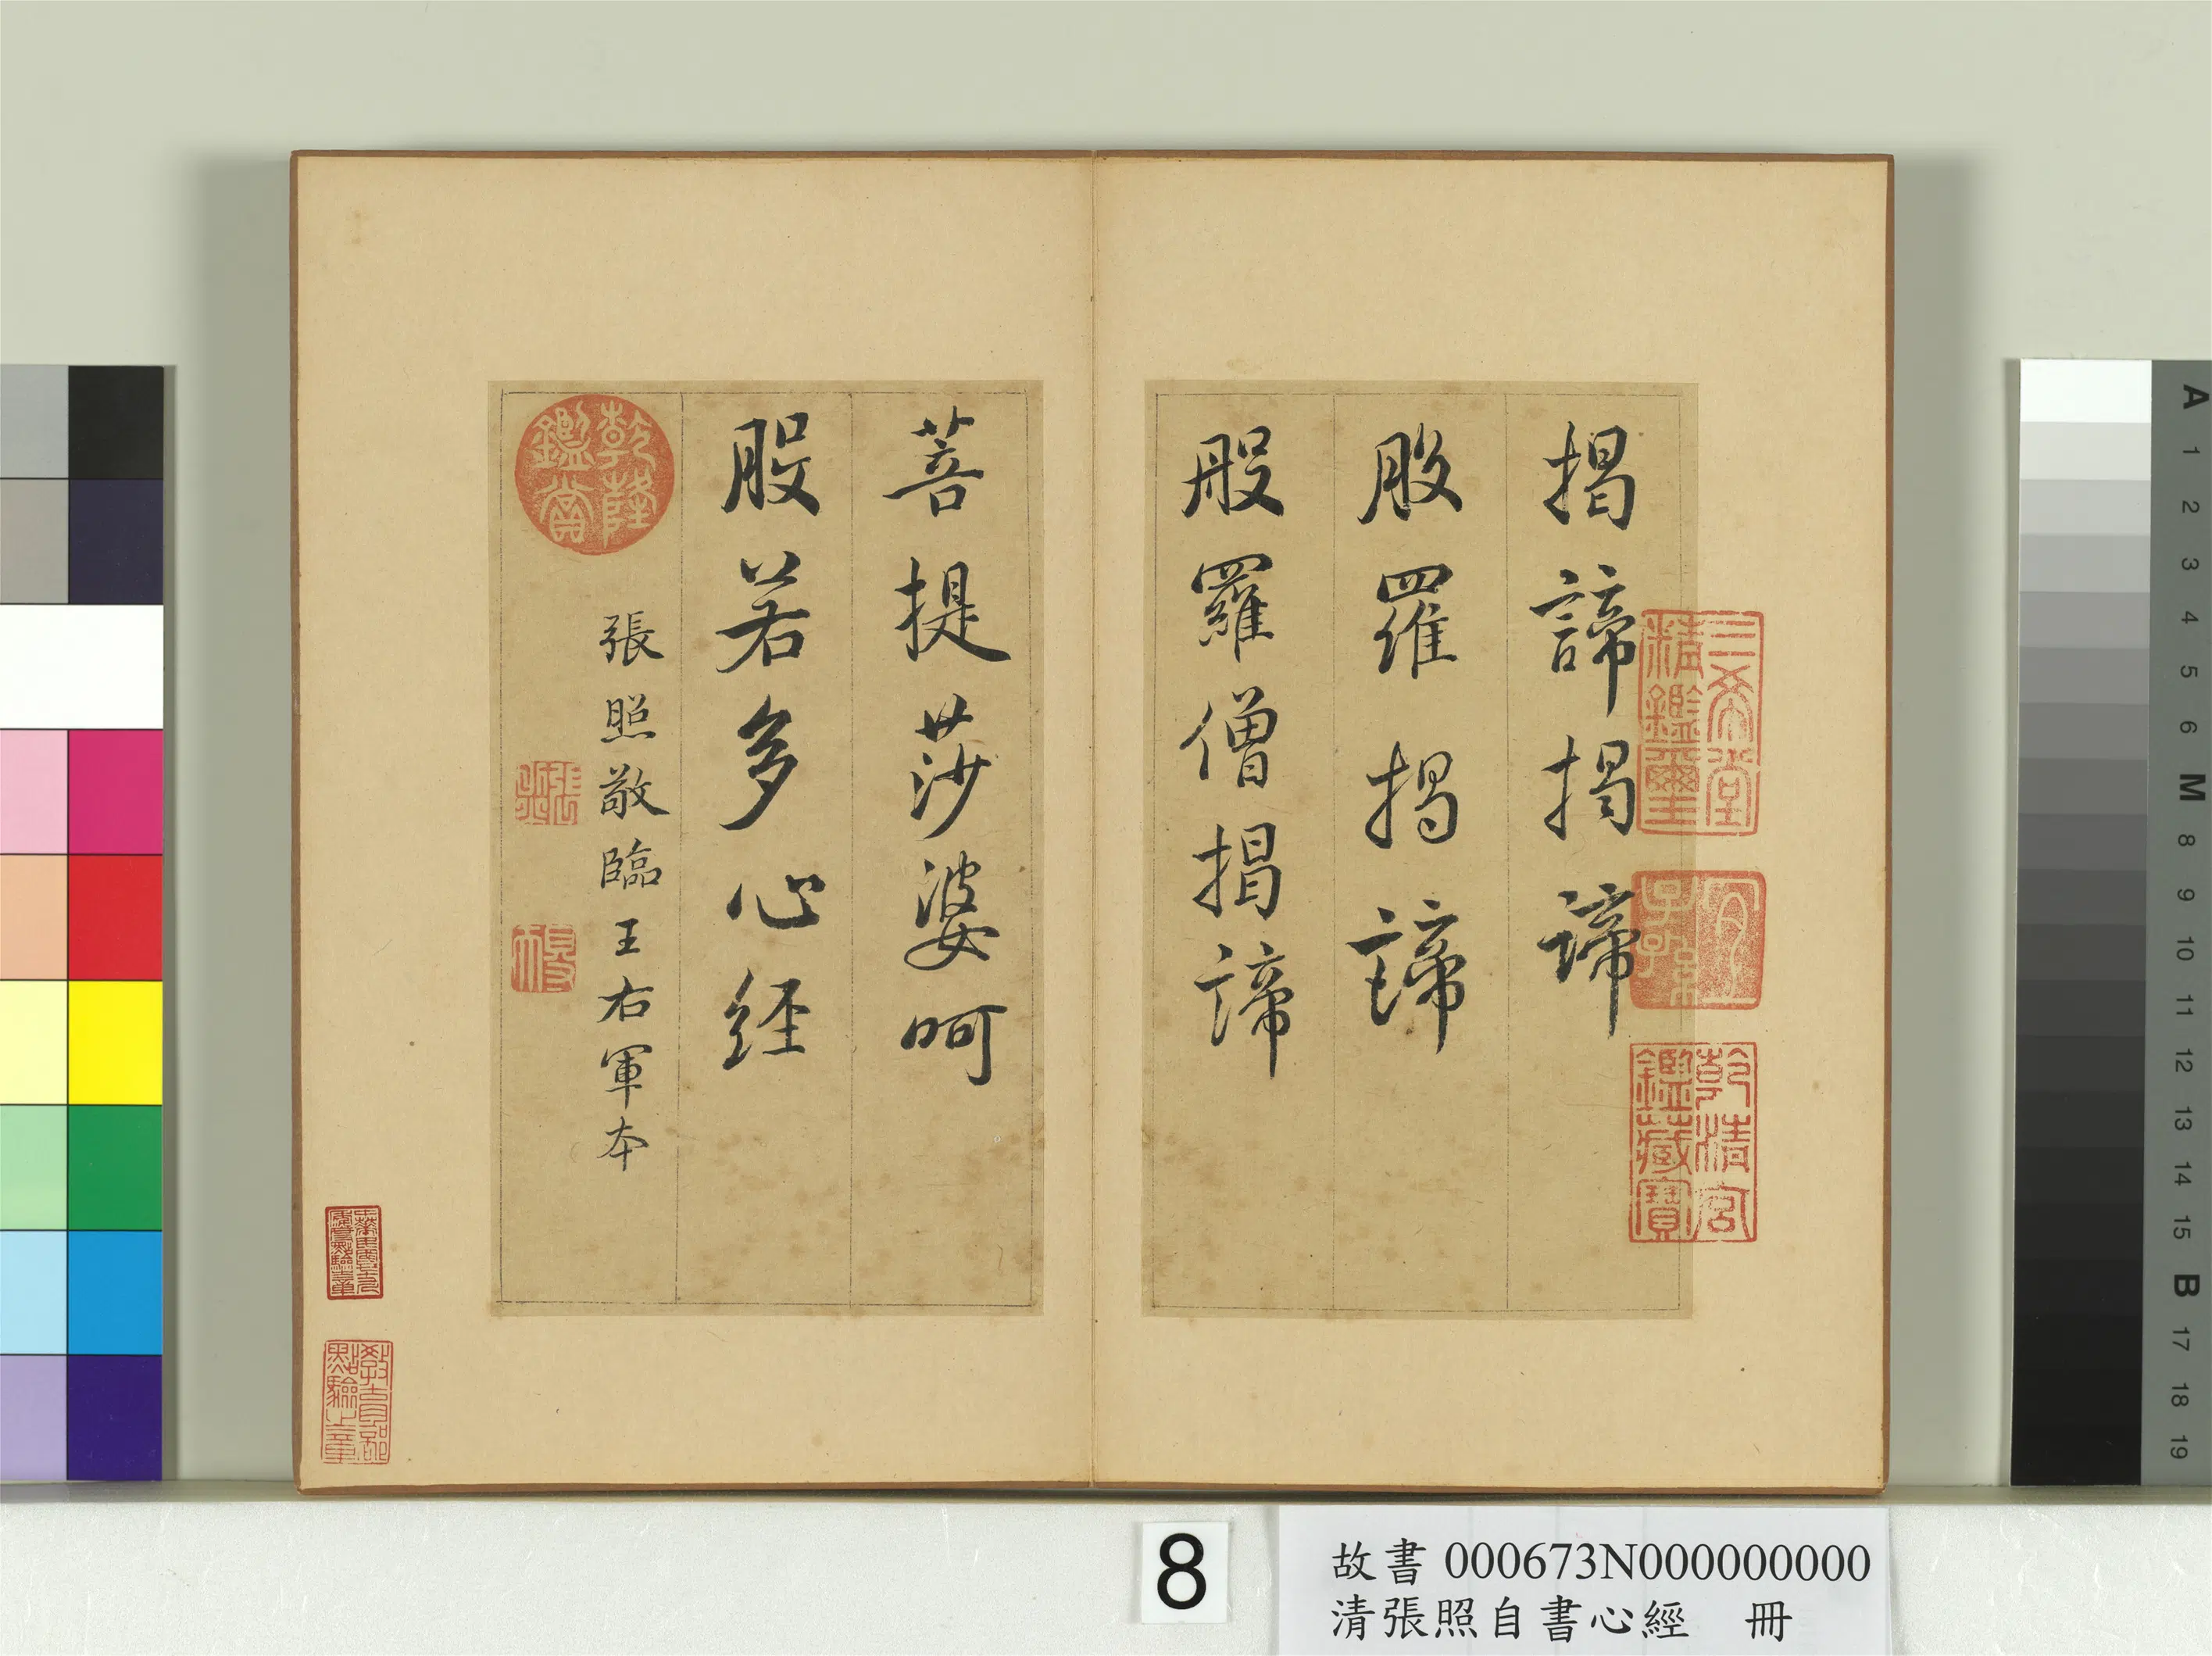 揭諦揭諦
般羅揭諦
般羅僧揭諦
菩提莎婆呵
般若多心经
張照敬臨王右軍本
乾隆鑑賞
三希堂精鑑璽
宜子孫
乾清宮鑑藏寶
張照
教育部點驗之章
8
故書 000673N000000000
清張照自書心經 冊
A
1
2
3
4
5
6
M
8
9
10
11
12
13
14
15
B
17
18
19